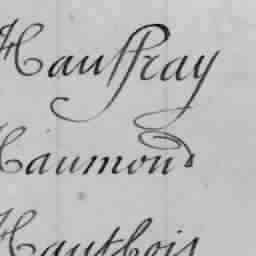 Hauffray
Haumond
Hautbois